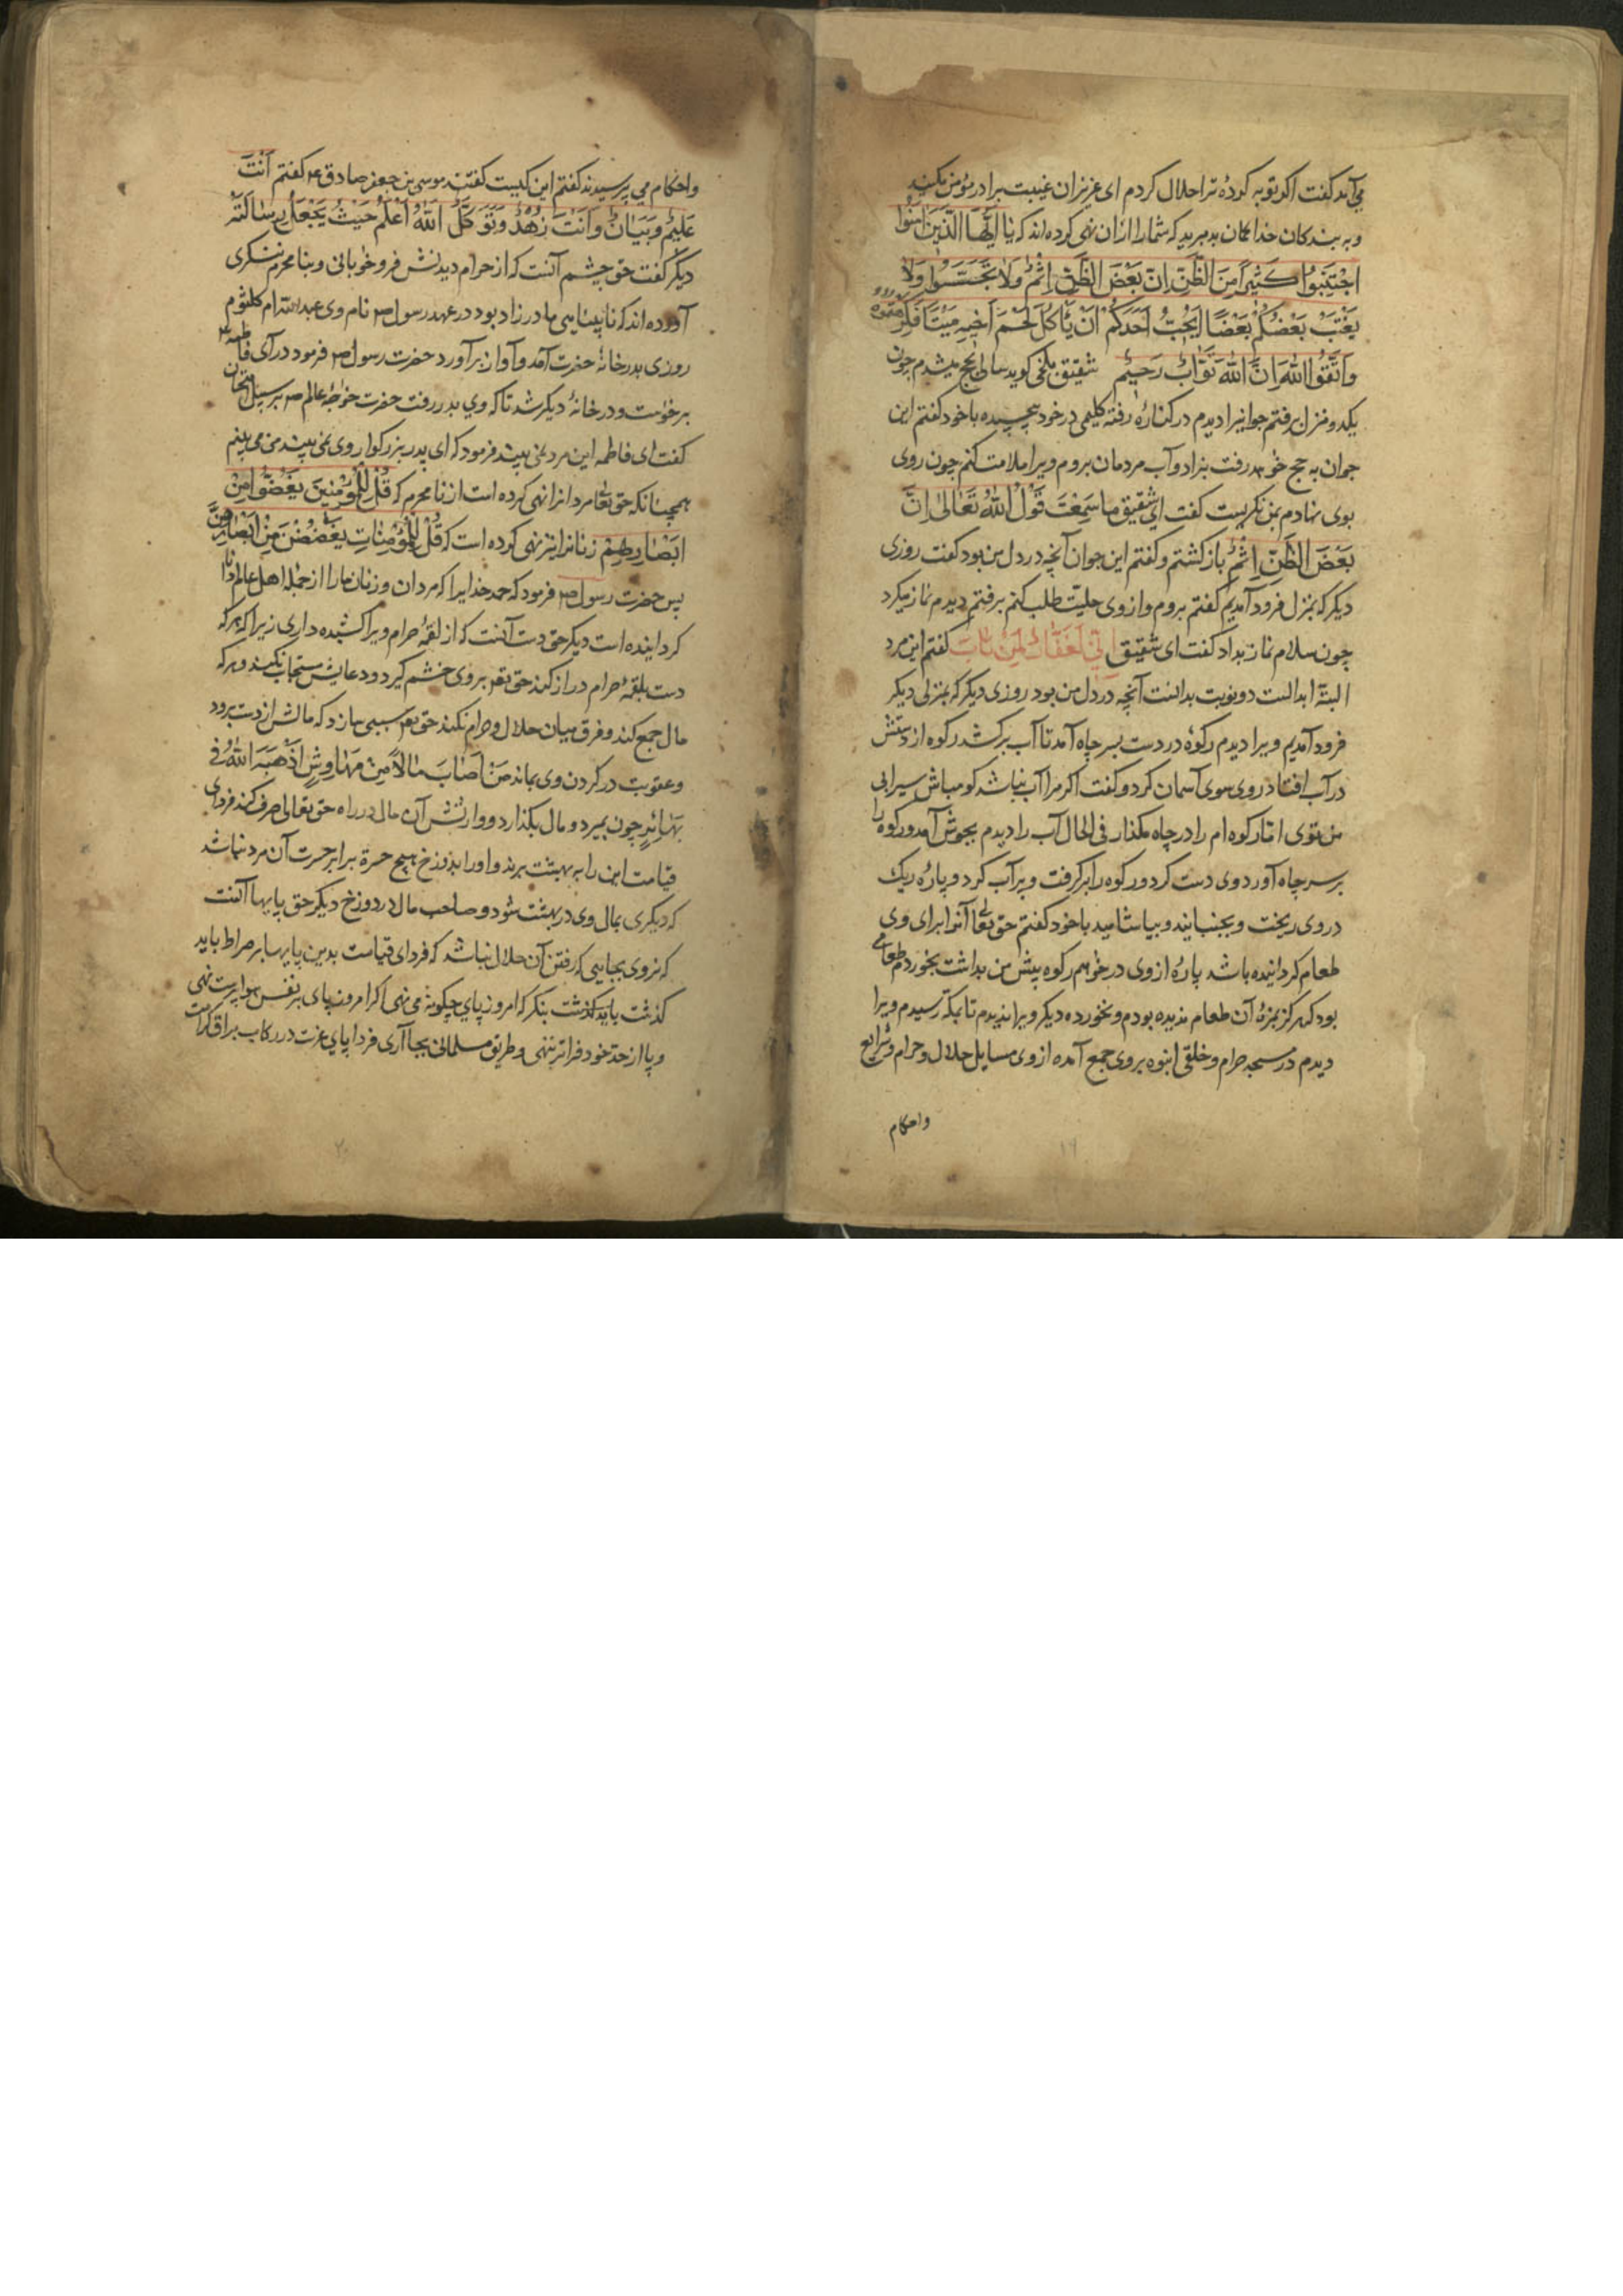 می‌آید کفت اکر توبه کردهٔ ترا حلال کردم ای عزیزان غیبت برادر مؤمن مکنید
و به بندکان خدا کمان بد مبرید که شما را از آن نهی کرده‌اند که یَا اَیُّهَا الَّذِینَ اٰمَنُوا
اجْتَنِبُوا کَثِیرًا مِنَ الظَّنِّ اِنَّ بَعْضَ الظَّنِّ اِثْمٌ وَلَا تَجَسَّسُوا وَلَا
یَغْتَبْ بَعْضُکُمْ بَعْضًا اَیُحِبُّ اَحَدُکُمْ اَنْ یَأکُلَ لَحْمَ اَخِیهِ مَیْتًا فَکَرِهْتُمُوهُ
وَاتَّقُوا اللهَ اِنَّ اللهَ تَوَّابٌ رَحِیمٌ شقیق بلخی کوید سالی بحج میشدم چون
یکدو منزل برفتم جوانیرا دیدم در کنارهٔ رفته کلیمی در خود پیچیده با خود کفتم این
جوان به حج خواهد رفت بی زاد و آب مردمان بروم ویرا ملامت کنم چون روی
بوی نهادم بمن نکریست کفت ای شقیق ما سَمِعْتَ قَوْلَ اللهُ تَعَالٰی اِنَّ
بَعْضَ الظَّنِّ اِثْمٌ باز کشتم و کفتم این جوان آنچه در دل من بود کفت روزی
دیکر که بمنزل فرود آمدیم کفتم بروم و از وی حلیت طلب کنم برفتم دیدم نماز میکرد
چون سلام نماز بداد کفت ای شقیق اِنِّی لَغَفَّارٌ لِمَنْ تَابَ کفتم این مرد
البتّه ابدالست دو نوبت بدانست آنچه در دل من بود روزی دیکر که بمنزلی دیکر
فرود آمدیم ویرا دیدم رکوهٔ در دست بسر چاه آمد تا آب برکشد رکوه از دستش
در آب افتاد روی سوی آسمان کرد و کفت اکر مرا آب نباشد کو مباش سیرابی
من توی امّا رکوه‌ام را در چاه مکذار فی الحال آب را دیدم بجوش آمد و رکوه را
بر سر چاه آورد وی دست کرد و رکوه را برکرفت و پر آب کرد و پارهٔ ریک
در وی ریخت و بجنبانید و بیاشامید با خود کفتم حق تعالی آنرا برای وی
طعام کردانیده باشد پارهٔ از وی درخواهم رکوه پیش من بداشت بخوردم طعامی
بود که هرکز بمزهٔ آن طعام ندیده بودم و نخورده دیکر ویرا ندیدم تا بمکّه رسیدم ویرا
دیدم در مسجد حرام و خلقی انبوه بر وی جمع آمده از وی مسایل حلال و حرام و شرایع
واحکام
۱۹
واحکام می پرسیدند کفتم این کیست کفتند موسی بن جعفر صادق ع کفتم اَنْتَ
عَلِیْمٌ وَبَیَانٌ وَاَنْتَ زُهْدٌ وَتَوَکُّلٌ اَللهُ اَعْلَمُ حَیْثُ یَجْعَلُ رِسَالَتَهُ
دیکر کفت حق چشم آنست که از حرام دیدنش فرو خوابانی و بنا محرم ننکری
آورده‌اند که نابینایی مادر زاد بود در عهد رسول ص نام وی عبدالله ام کلثوم
روزی بدر خانهٔ حضرت آمد و آواز برآورد حضرت رسول ص فرمود در آی فاطمه ع
برخواست و در خانهٔ دیکر شد تا که وی بدر رفت حضرت خواجهٔ عالم ص بر سبیل امتحان
کفت ای فاطمه این مرد نمی بیند فرمود که ای پدر بزرکوار وی نمی بیند من می بینم
همچنانکه حق تعا مردانرا نهی کرده است از نامحرم که قُلْ لِلْمُؤْمِنِینَ یَغُضُّوا مِنْ
اَبْصَارِهِمْ زنانرا نیز نهی کرده است که قُلْ لِلْمُؤْمِنَاتِ یَغْضُضْنَ مِنْ اَبْصَارِهِنَّ
پس حضرت رسول ص فرمود که حمد خدایرا که مردان و زنان ما را از جملهٔ اهل عالم دانا
کردانیده است دیکر حق دست آنست که از لقمهٔ حرام ویرا کشیده داری زیرا که هرکه
دست بلقمهٔ حرام دراز کند حق تع بر وی خشم کیرد و دعایش مستجاب نکند و هرکه
مال جمع کند و فرق میان حلال و حرام نکند حق تع سببی سازد که مالش از دست برود
و عقوبت در کردن وی بماند مَنْ اَصَابَ مَالاً مِنْ مَهَاوِشٍ اَذْهَبَهُ اللهُ فی
نَهَابِرٍ چون بمیرد و مال بکذارد و وارثش آن مال در راه حق تعالی صرف کند فردای
قیامت این را به بهشت برند و او را بدوزخ هیچ حسرة برابر حسرت آن مرد نباشد
که دیکری بمال وی در بهشت شود و صاحب مال در دوزخ دیکر حق پایها آنست
که نروی بجایی که رفتن آن حلال نباشد که فردای قیامت بدین پایها بر صراط باید
کذشت باید کذشت بنکر که امروز پای چکونه می نهی اکر امروز پای بر نفس هوا پرست نهی
و پا از حد خود فراتر ننهی و طریق مسلمانی بجا آری فردا پای عزت در رکاب براق کرامت
۲۰